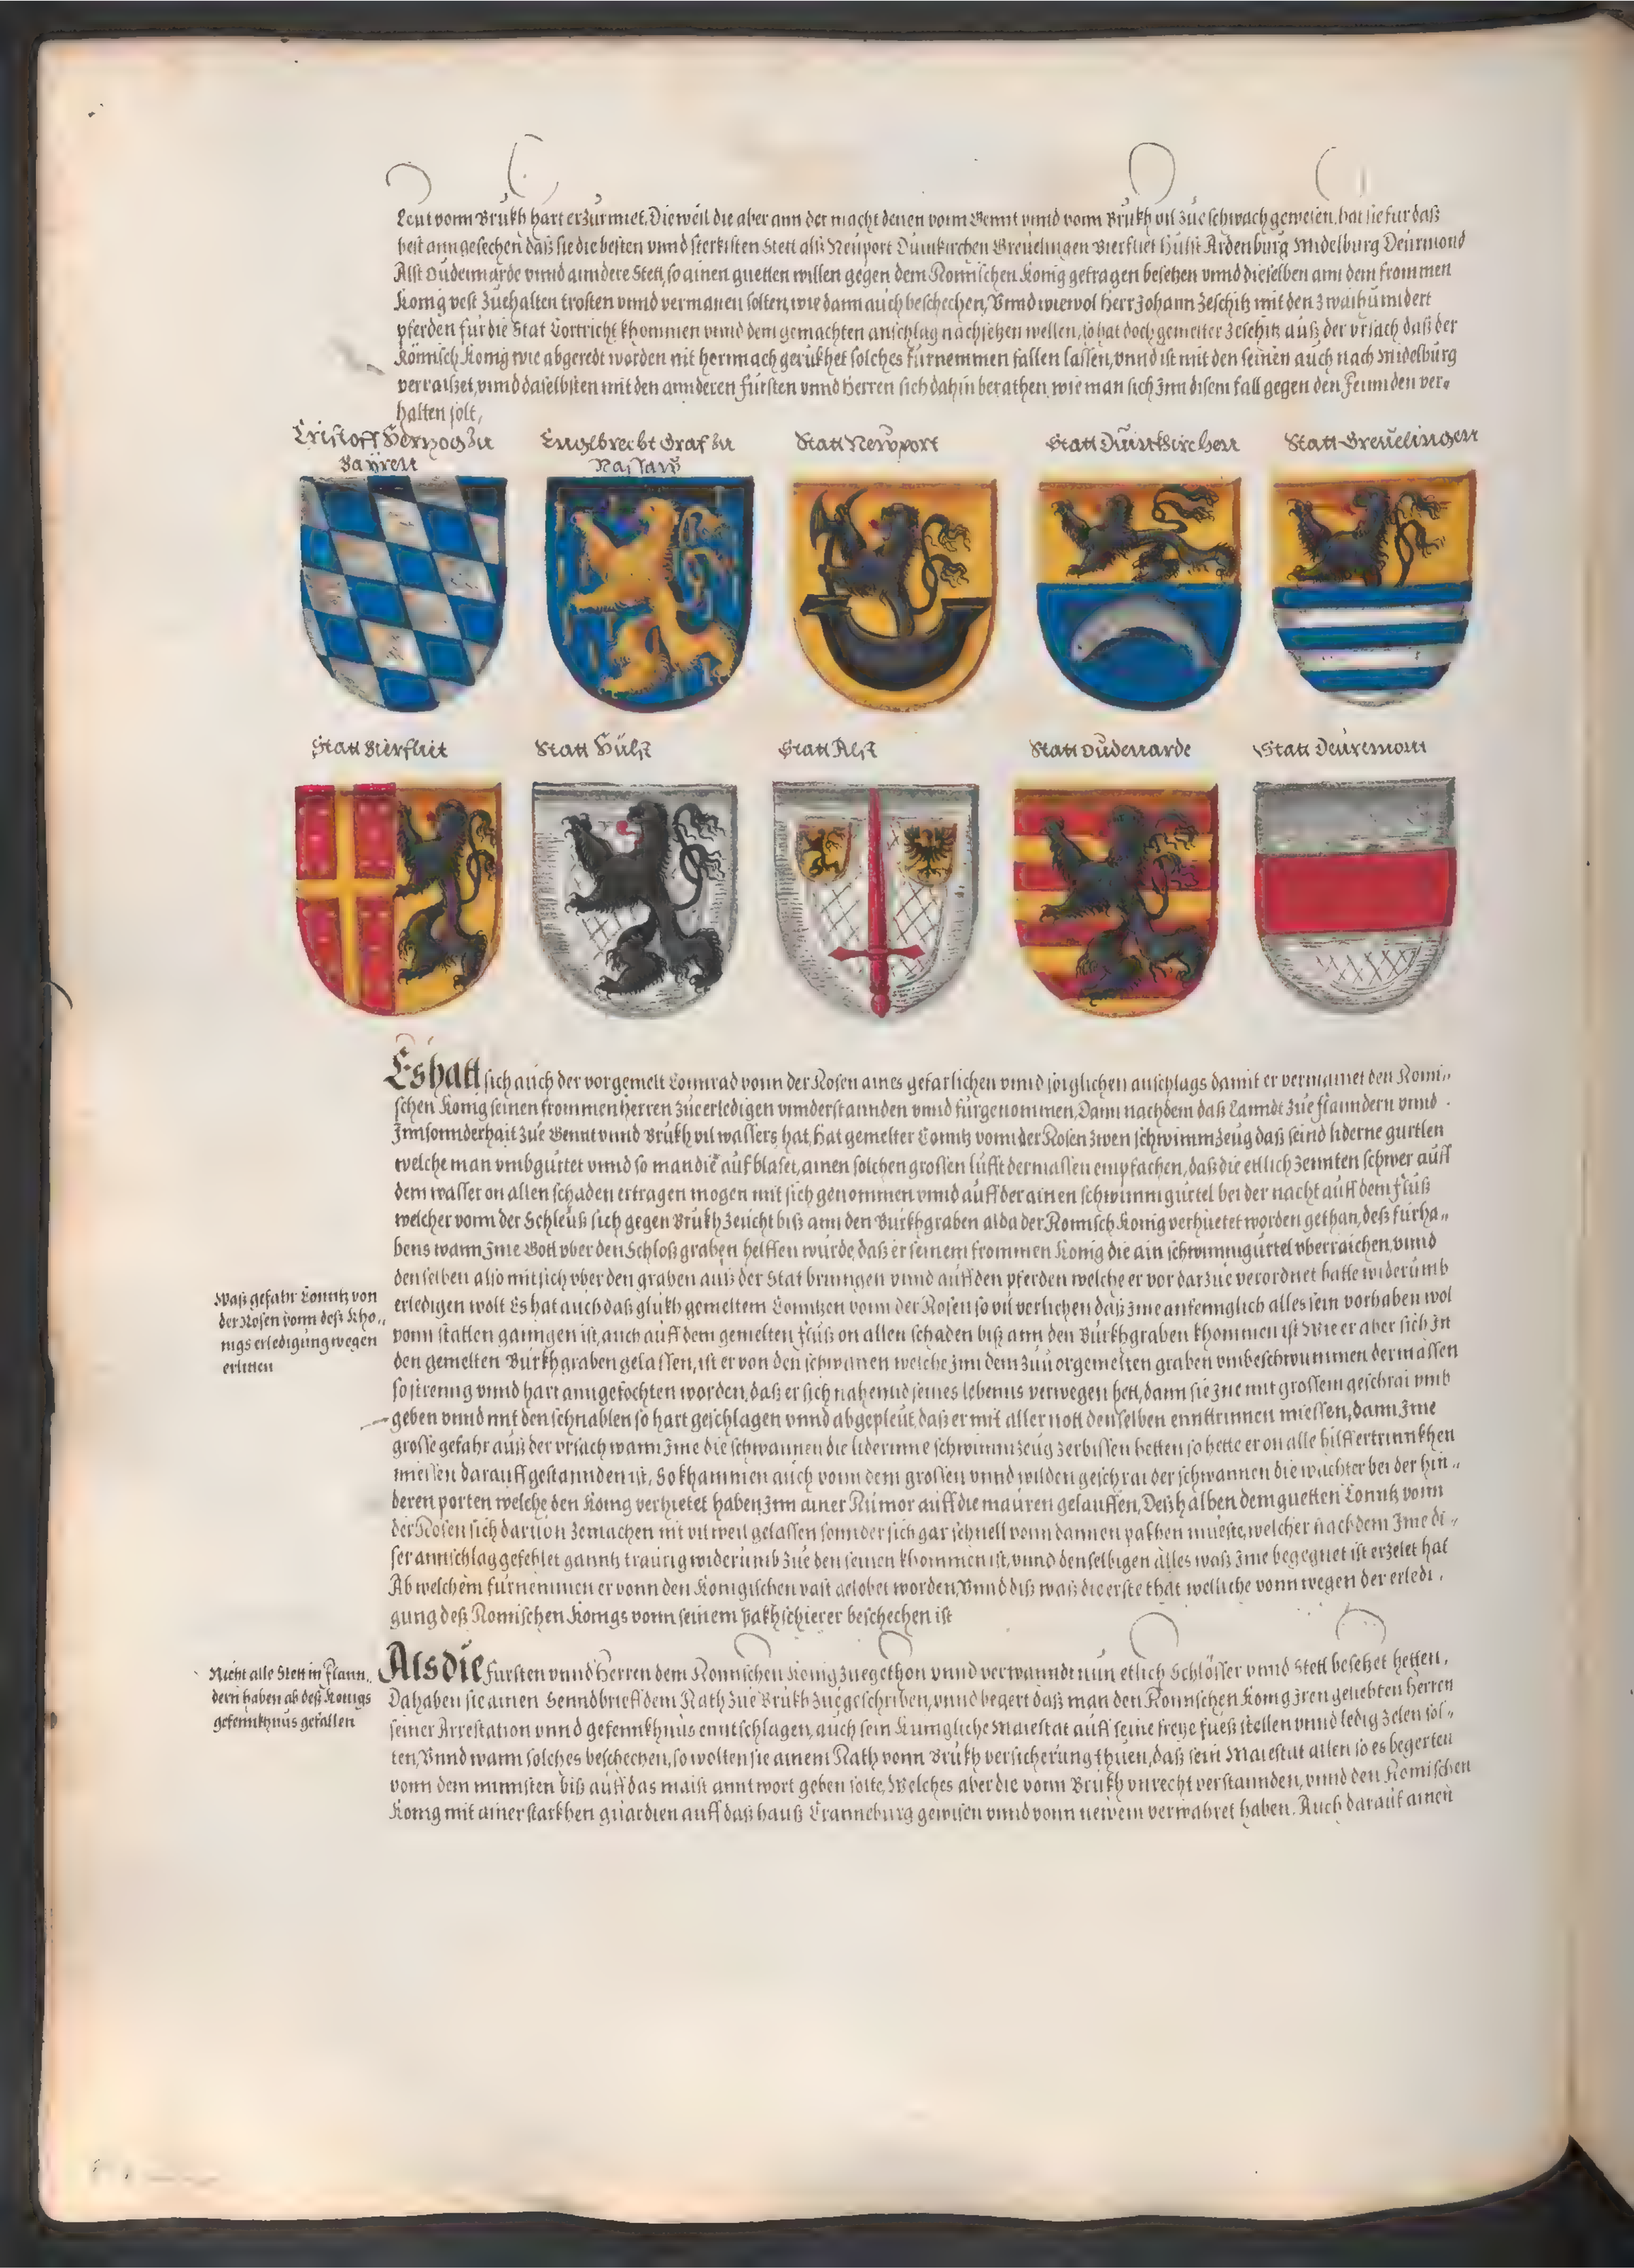 Leut vonn Brukh hart erzürnnet. Dieweil die aber ann der macht denen vonn Gennt vnnd vonn Brukh vil zue schwach gewesen, hat sie fur daß
best anngesechen daß sie die besten vnnd sterkisten Stett alß Neuport Duinkirchen Greuelingen Bierfliet Hülst Ardenburg Midelburg Deurmond
Alst Oudennarde vnnd anndere Stett, so ainen guetten willen gegen dem Romischen Konig getragen besetzen vnnd dieselben ann dem frommen
Konig vest zuehalten trosten vnnd vermanen solten, wie dann auch beschechen, Vnnd wiewol Herr Johann Zeschitz mit den zwaihunndert
pferden fur die Stat Cortricht khommen vnnd dem gemachten anschlag nachsetzen wellen, so hat doch gemelter Zeschitz auß der vrsach daß der
Römisch Konig wie abgeredt worden nit hernnach gerukhet solches furnemmen fallen lassen, vnnd ist mit den seinen auch nach Midelburg
verraiset, vnnd daselbsten mit den annderen fursten vnnd Herren sich dahin berathen, wie man sich Inn disem fall gegen den Feinnden ver-
halten solt,
Cristoff Hertzog zu
Bayren
Engelbrecht Graf zu
Nassaw
Statt Newport
Statt Duinkirchen
Statt Greuelingen
Statt Bierfliet
Statt Hülst
Statt Alst
Statt Oudenarde
Statt Deuremont
Es hatt sich auch der vorgemelt Connrad vonn der Rosen aines gefarlichen vnnd sorglichen anschlags damit er vermainet den Romi-
schen Konig seinen frommen Herren zueerledigen vnnderstannden vnnd furgenommen, Dann nachdem daß Lanndt zue flanndern vnnd
Innsonnderhait zue Gennt vnnd Brukh vil wassers hat, hat gemelter Conntz vonn der Rosen zwen schwimmzeug daß seind liderne gurtlen
welche man vmbgurtet vnnd so man die aufblaset, ainen solchen grossen lufft dermassen empfachen, daß die etlich zennten schwer auff
dem wasser on allen schaden ertragen mogen mit sich genommen vnnd auff der ainen schwimmgurtel bei der nacht auff dem fluß
welcher vonn der Schleuß sich gegen Brukh zeucht biß ann den Burkhgraben alda der Romisch Konig verhuetet worden gethan, deß furha-
bens wann Ime Gott vber den Schloßgraben helffen wurde, daß er seinem frommen Konig die ain schwimmgurtel vberraichen, vnnd
denselben also mit sich vber den graben auß der Stat bringen vnnd auff den pferden welche er vor darzue verordnet hatte widerumb
erledigen wolt Es hat auch daß glukh gemeltem Conntzen vonn der Rosen so vil verlichen daß Ime anfennglich alles sein vorhaben wol
vonn statten ganngen ist, auch auff dem gemelten fluß on allen schaden biß ann den Burkhgraben khommen ist Wie er aber sich In
den gemelten Burkhgraben gelassen, ist er von den schwanen welche Inn dem zuuorgemelten graben vmbeschwummen dermassen
so strenng vnnd hart anngefochten worden, daß er sich nahend seines lebenns verwegen hett, dann sie Ine mit grossem geschrai vmb
geben vnnd mit den schnablen so hart geschlagen vnnd abgepleut, daß er mit aller nott denselben enntrinnen miessen, dann Ime
grosse gefahr auß der vrsach wann Ime die schwannen die liderinne schwimmzeug zerbissen hetten so hette er on alle hilff ertrinnkhen
miessen darauff gestannden ist, So khammen auch vonn dem grossen vnnd wilden geschrai der schwannen die wachter bei der hin-
deren porten welche den Konig verhietet haben Inn ainer Rumor auff die mauren gelauffen, Deßhalben dem guetten Conntz vonn
der Rosen sich daruon zemachen nit vil weil gelassen sonnder sich gar schnell vonn dannen pakhen mueste, welcher nach dem Ime di-
ser annschlag gefehlet ganntz traurig widerumb zue den seinen khommen ist, vnnd denselbigen alles waß Ime begegnet ist erzelet hat
Ab welchem furnemmen er vonn den Konigischen vast gelobet worden, Vnnd diß waß die erste that welliche vonn wegen der erledi-
gung deß Romischen Konigs vonn seinem Pakhschierer beschechen ist
Waß gefahr Conntz von
der Rosen vonn deß Kho-
nigs erledigung wegen
erlitten
Nicht alle Stett in Flann-
dern haben ab deß Konigs
gefennkhnus gefallen
Als die Fursten vnnd Herren dem Romischen Konig zuegethon vnnd verwanndt nun etlich Schlösser vnnd Stett besetzet hetten,
Da haben sie ainen Senndbrieff dem Rath zue Brukh zuegeschriben, vnnd begert daß man den Romischen Konig Iren geliebten Herren
seiner Arrestation vnnd gefennkhnus enntschlagen, auch sein Kunigliche Maiestat auff seine freye fueß stellen vnnd ledig zelen sol-
ten, Vnnd wann solches beschechen, so wolten sie ainem Rath vonn Brukh versicherung thuen, daß sein Maiestat allen so es begerten
vonn dem minnsten biß auff das maist anntwort geben solte, Welches aber die vonn Brukh vnrecht verstannden, vnnd den Romischen
Konig mit ainer starkhen guardien auff daß hauß Cranneburg gewisen vnnd vonn neuem verwahret haben. Auch darauf ainen